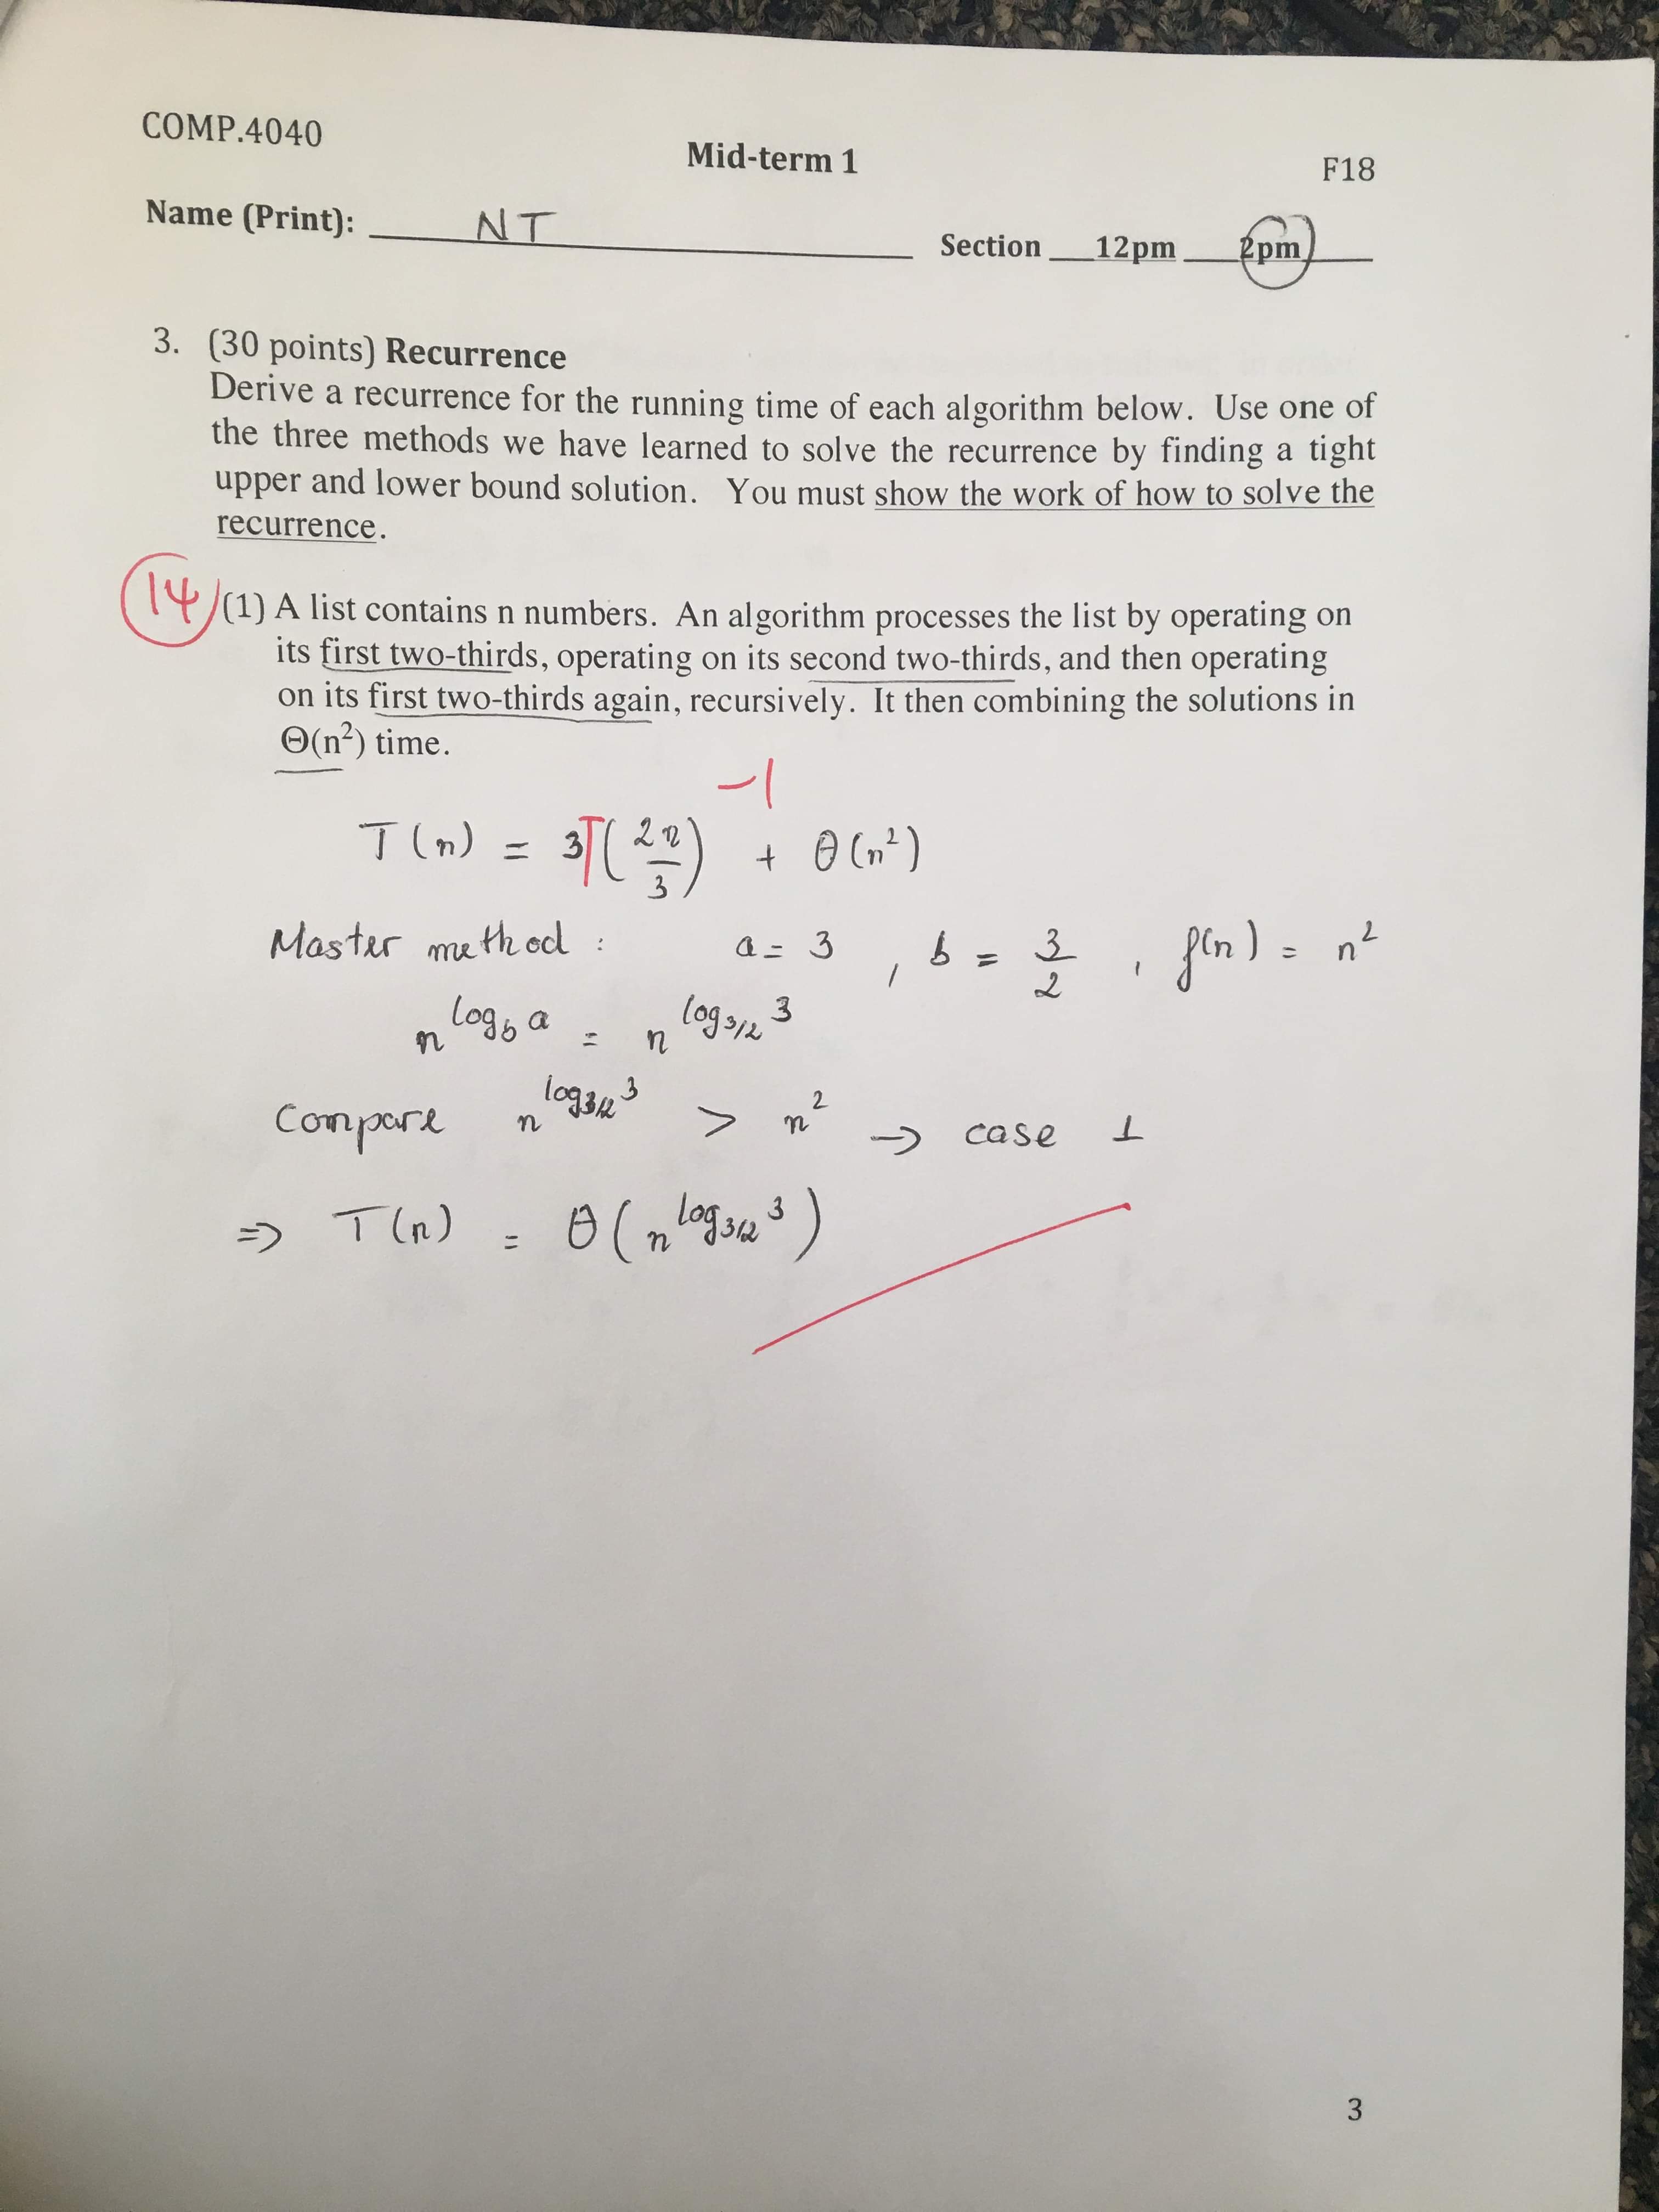 COMP.4040
Mid-term 1
F18
Name (Print): NT Section ___12pm ___2pm___
3. (30 points) Recurrence
Derive a recurrence for the running time of each algorithm below. Use one of
the three methods we have learned to solve the recurrence by finding a tight
upper and lower bound solution. You must show the work of how to solve the
recurrence.
14 (1) A list contains n numbers. An algorithm processes the list by operating on
its first two-thirds, operating on its second two-thirds, and then operating
on its first two-thirds again, recursively. It then combining the solutions in
Θ(n²) time.
-1
T(n) = 3T(2n/3) + Θ(n²)
Master method : a = 3 , b = 3/2 , f(n) = n²
n^log_b a = n^log_3/2 3
Compare n^log_3/2 3 > n² → case 1
⇒ T(n) = Θ(n^log_3/2 3)
3